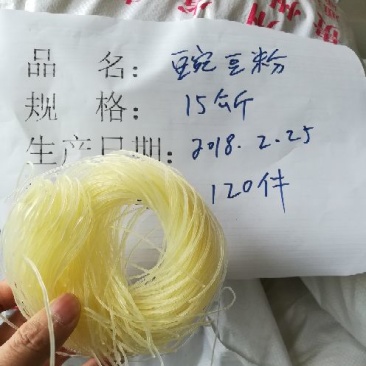 品 名: 豌豆粉
规 格: 15公斤
生产日期: 2018.2.25
120件